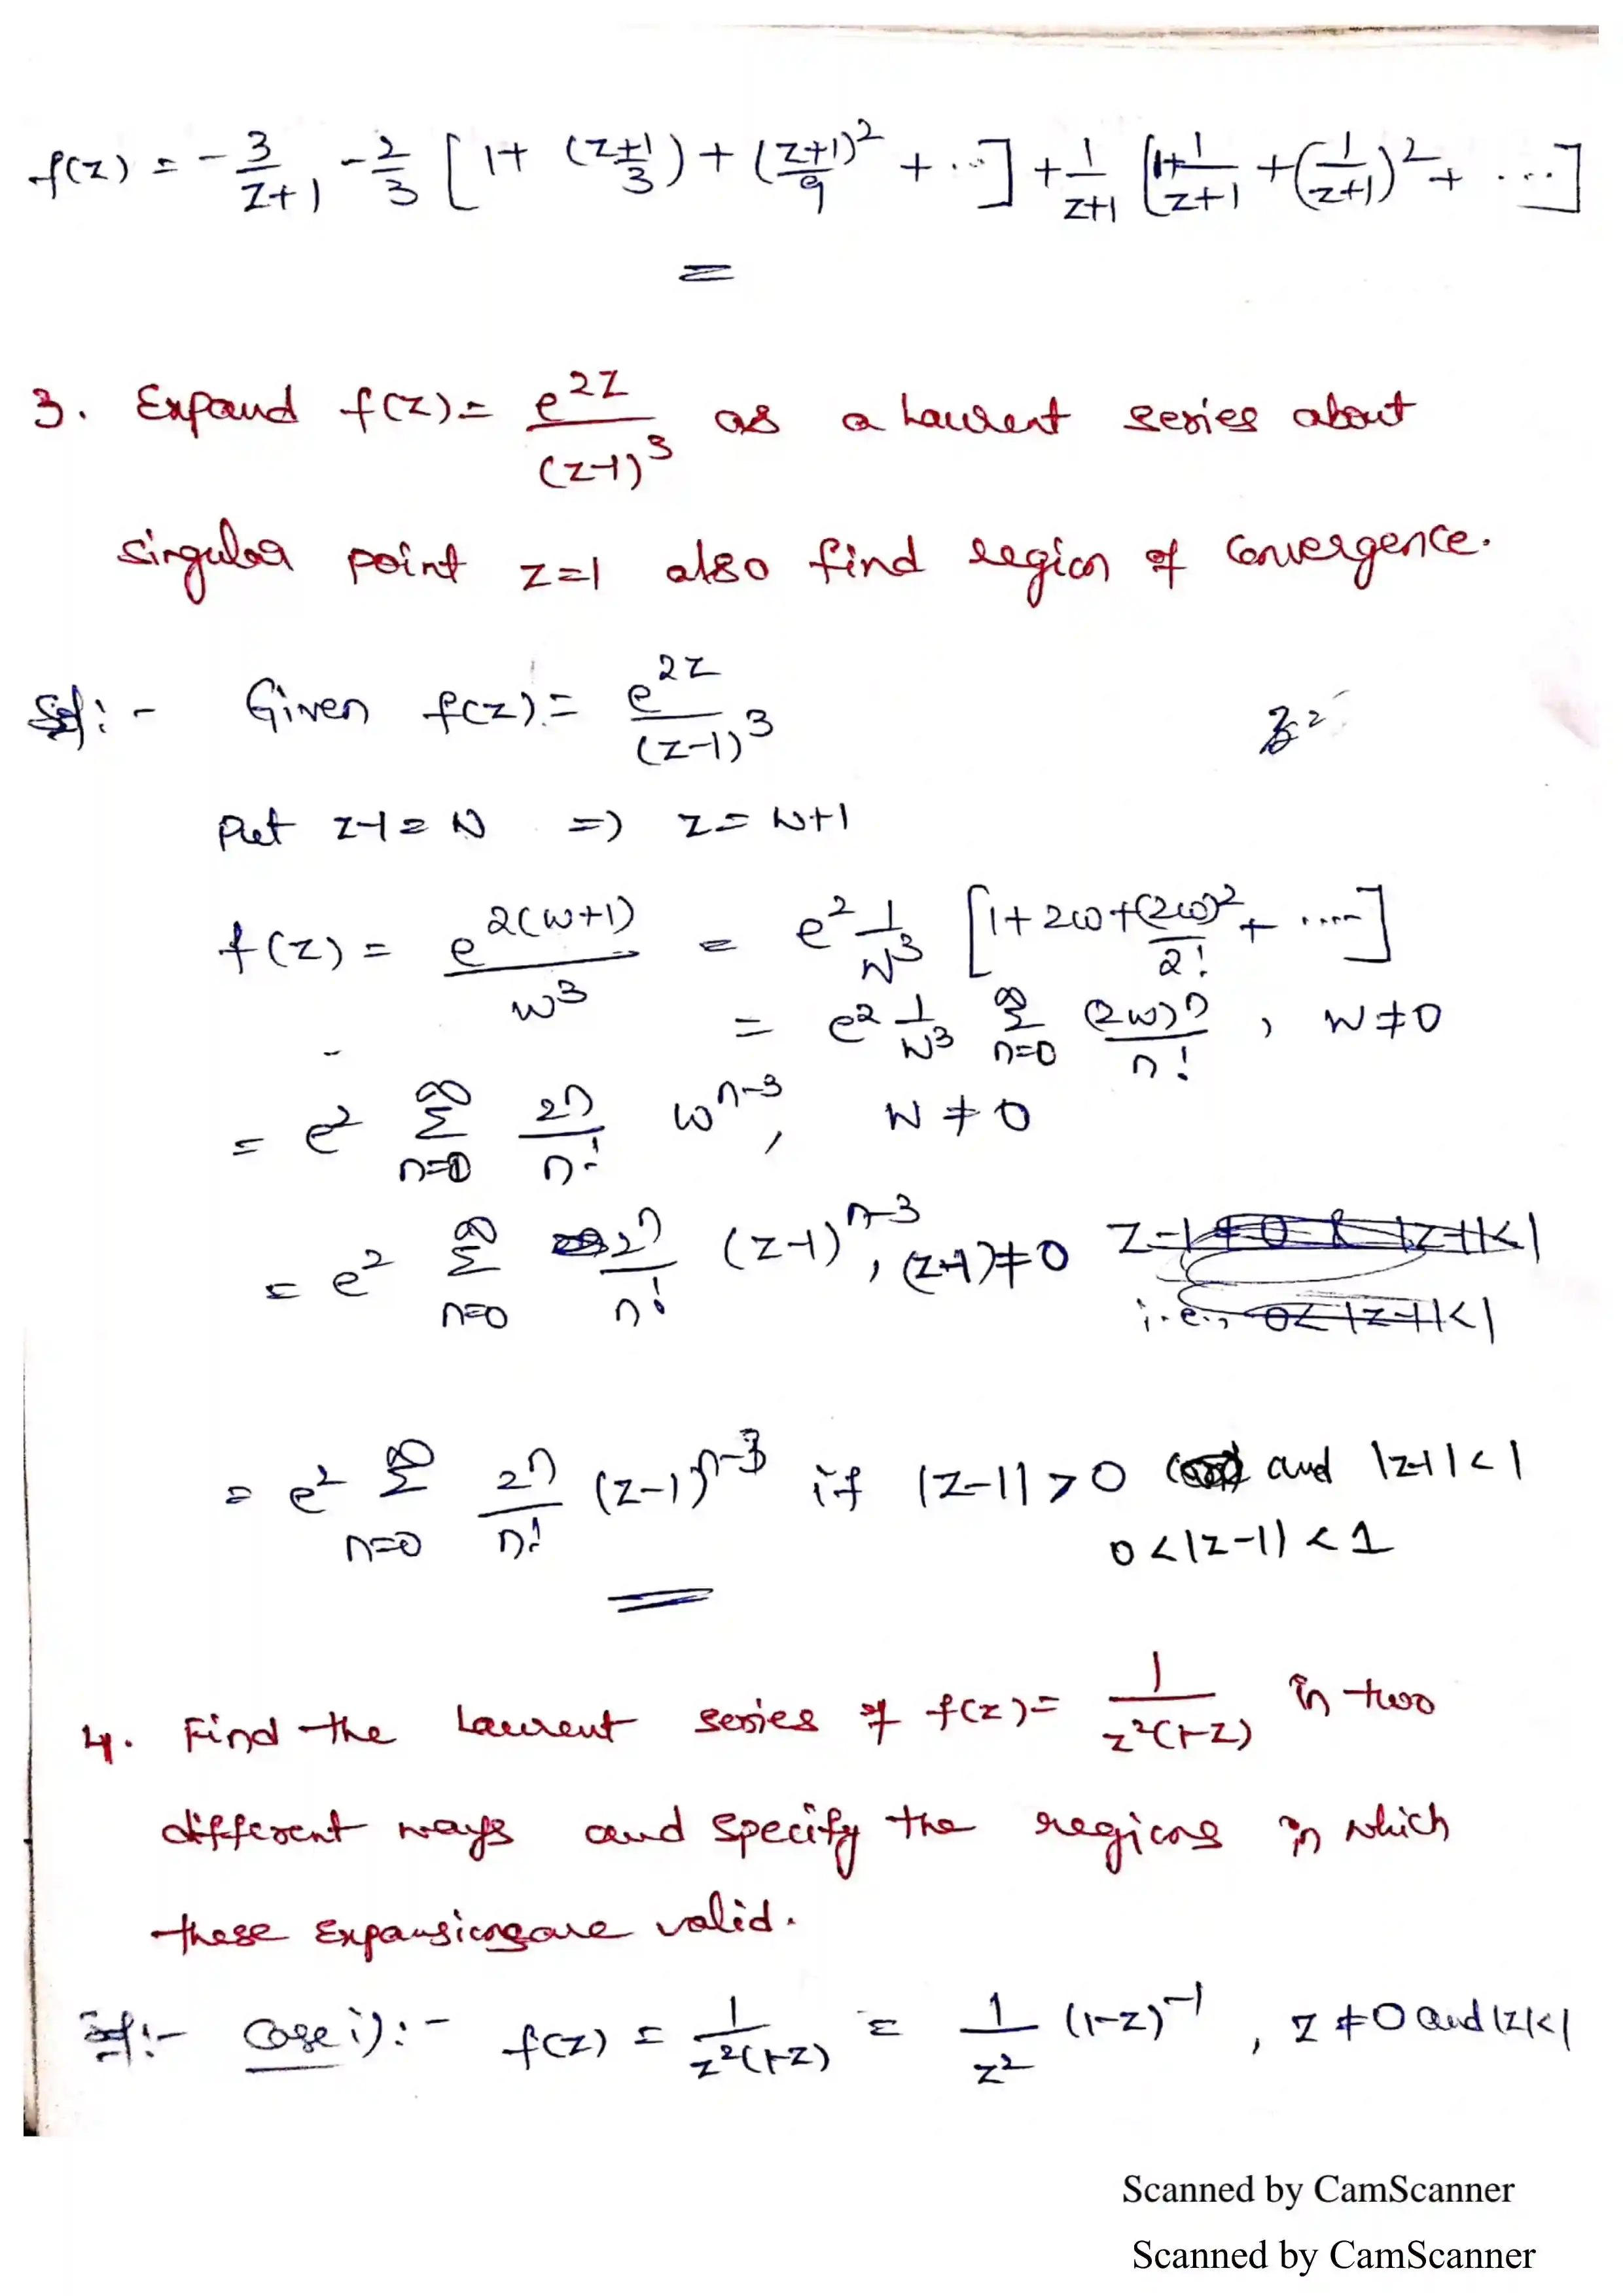 f(z) = - 3/(z+1) - 2/3 [1 + (z+1/3) + (z+1)²/9 + ...] + 1/(z+1) [1 + 1/(z+1) + (1/(z+1))² + ...]
=
3. Expand f(z) = e^{2z}/(z-1)³ as a Laurent series about
singular point z=1 also find region of convergence.
Sol:- Given f(z) = e^{2z}/(z-1)³
Put z-1 = w => z = w+1
f(z) = e^{2(w+1)}/w³ = e² 1/w³ [1 + 2w + (2w)²/2! + .....]
= e² 1/w³ ∑_{n=0}^{∞} (2w)^n/n! , w ≠ 0
= e² ∑_{n=0}^{∞} 2^n/n! w^{n-3}, w ≠ 0
= e² ∑_{n=0}^{∞} 2^n/n! (z-1)^{n-3}, (z-1) ≠ 0 z-1 ≠ 0 & |z-1|<1
i.e., 0<|z-1|<1
= e² ∑_{n=0}^{∞} 2^n/n! (z-1)^{n-3} if |z-1| > 0 and |z-1| < 1
0 < |z-1| < 1
4. Find the Laurent series of f(z) = 1/(z²(1-z)) in two
different ways and specify the regions in which
these expansions are valid.
Sol:- Case i):- f(z) = 1/(z²(1-z)) = 1/z² (1-z)^{-1} , z ≠ 0 and |z|<1
Scanned by CamScanner
Scanned by CamScanner